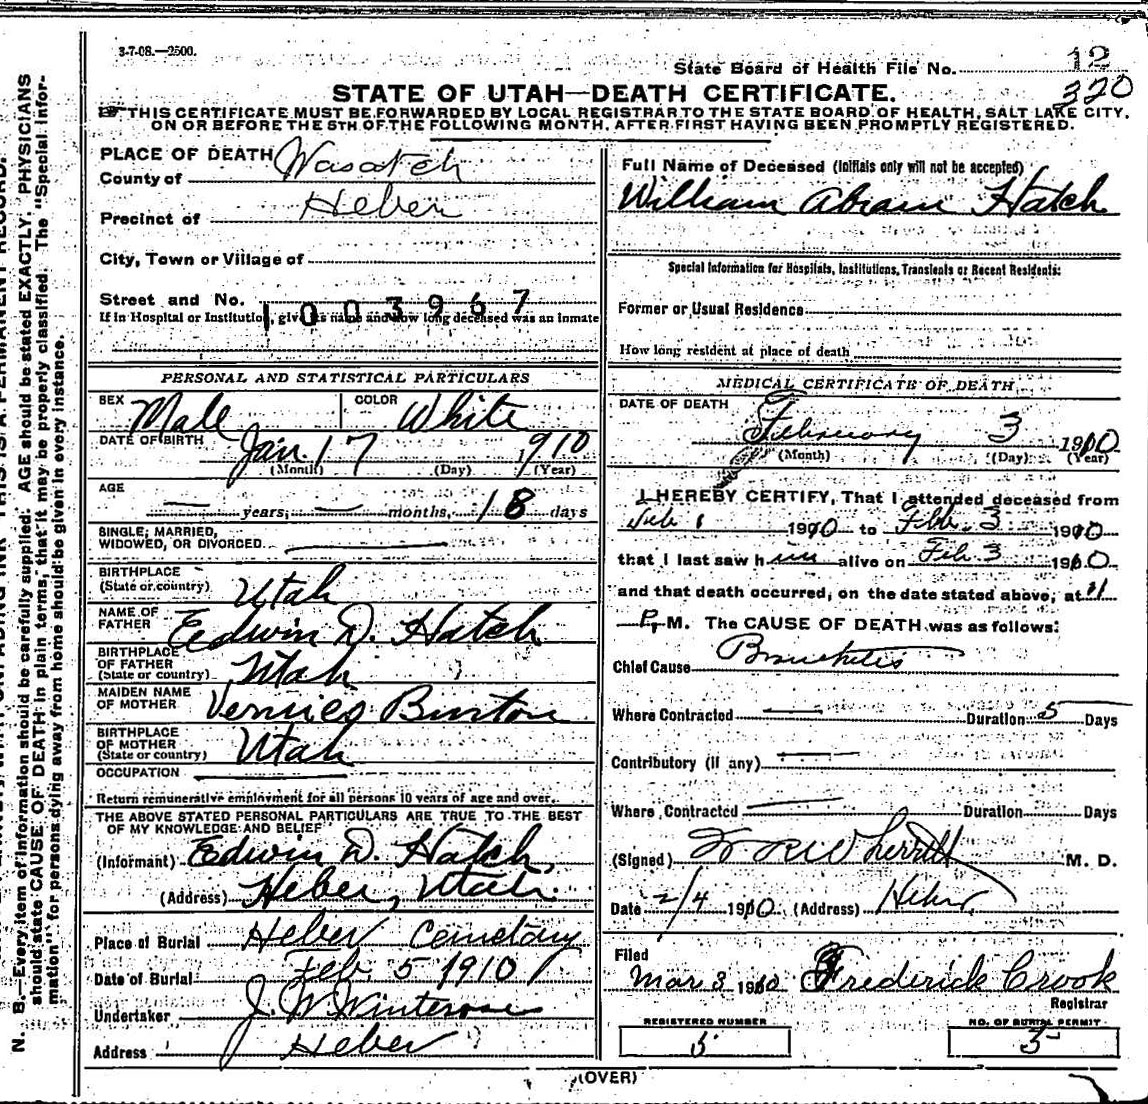 3-7-08.—2500.
State Board of Health File No. 12
320
STATE OF UTAH—DEATH CERTIFICATE.
THIS CERTIFICATE MUST BE FORWARDED BY LOCAL REGISTRAR TO THE STATE BOARD OF HEALTH, SALT LAKE CITY,
ON OR BEFORE THE 5TH OF THE FOLLOWING MONTH, AFTER FIRST HAVING BEEN PROMPTLY REGISTERED.
PLACE OF DEATH
County of Wasatch
Precinct of Heber
City, Town or Village of
Street and No.
1003967
If in Hospital or Institution, give its name and how long deceased was an inmate
PERSONAL AND STATISTICAL PARTICULARS
SEX Male COLOR White
DATE OF BIRTH Jan 17 1910
(Month) (Day) (Year)
AGE — years, — months, 18 days
SINGLE, MARRIED,
WIDOWED, OR DIVORCED
BIRTHPLACE
(State or country) Utah
NAME OF
FATHER Edwin D. Hatch
BIRTHPLACE
OF FATHER
(State or country) Utah
MAIDEN NAME
OF MOTHER Vernies Burton
BIRTHPLACE
OF MOTHER
(State or country) Utah
OCCUPATION
Return remunerative employment for all persons 10 years of age and over.
THE ABOVE STATED PERSONAL PARTICULARS ARE TRUE TO THE BEST
OF MY KNOWLEDGE AND BELIEF
(Informant) Edwin D. Hatch,
(Address) Heber, Utah.
Place of Burial Heber Cemetary
Date of Burial Feb 5 1910
Undertaker J. W. Winterose
Address Heber
Full Name of Deceased (Initials only will not be accepted)
William Abram Hatch
Special Information for Hospitals, Institutions, Transients or Recent Residents:
Former or Usual Residence
How long resident at place of death
MEDICAL CERTIFICATE OF DEATH
DATE OF DEATH
February 3 1910
(Month) (Day) (Year)
I HEREBY CERTIFY, That I attended deceased from
Feb 1 1910 to Feb. 3 1910
that I last saw him alive on Feb 3 1910
and that death occurred, on the date stated above, at 11
P. M. The CAUSE OF DEATH was as follows:
Chief Cause Bronchitis
Where Contracted — Duration 5 Days
Contributory (if any) —
Where Contracted — Duration Days
(Signed) M. D.
Date 2/4 1910 (Address) Heber
Filed
Mar 3 1910 Frederick Crook
Registrar
REGISTERED NUMBER
5
NO. OF BURIAL PERMIT
5
(OVER)
N. B.—Every item of information should be carefully supplied. AGE should be stated EXACTLY. PHYSICIANS
should state CAUSE OF DEATH in plain terms, that it may be properly classified. The "Special Infor-
mation" for persons dying away from home should be given in every instance.